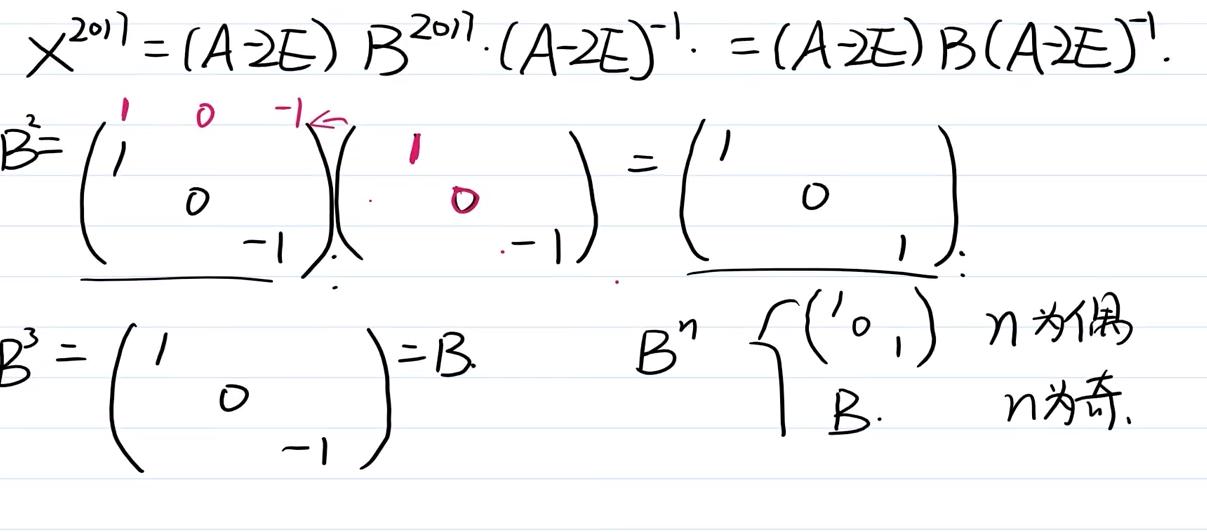 X^2017 = (A-2E) B^2017 · (A-2E)^-1 · = (A-2E) B (A-2E)^-1.
1 0 -1 ←
B^2 = (1 0 -1) (1 0 -1) = (1 0 1)
B^3 = (1 0 -1) = B. B^n { (1 0 1) n为偶
B. n为奇.